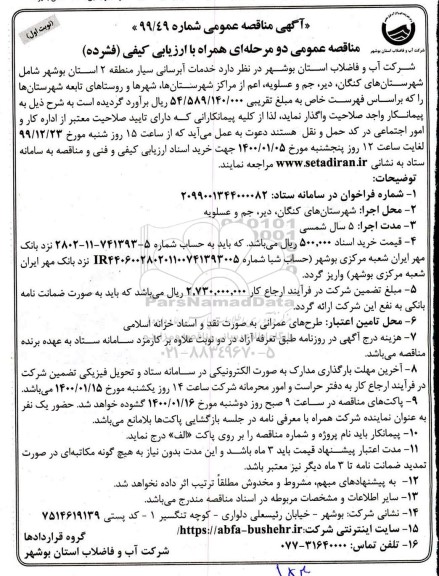 (نوبت اول)
«آگهی مناقصه عمومی شماره ۹۹/۴۹»
مناقصه عمومی دو مرحله‌ای همراه با ارزیابی کیفی (فشرده)
شرکت آب و فاضلاب استان بوشهر
شرکت آب و فاضلاب استان بوشهر در نظر دارد خدمات آبرسانی سیار منطقه ۲ استان بوشهر شامل
شهرستان‌های کنگان، دیر، جم و عسلویه، اعم از مراکز شهرستان‌ها، شهرها و روستاهای تابعه شهرستان‌ها
را که براساس فهرست خاص به مبلغ تقریبی ۵۴/۵۸۹/۱۴۰/۰۰۰ ریال برآورد گردیده است به شرح ذیل به
پیمانکار واجد صلاحیت واگذار نماید، لذا از کلیه پیمانکارانی که دارای تایید صلاحیت معتبر از اداره کار و
امور اجتماعی در کد حمل و نقل هستند دعوت به عمل می‌آید که از ساعت ۱۵ روز شنبه مورخ ۹۹/۱۲/۲۳
لغایت ساعت ۱۲ روز پنجشنبه مورخ ۱۴۰۰/۰۱/۰۵ جهت خرید اسناد ارزیابی کیفی و فنی و مناقصه به سامانه
ستاد به نشانی www.setadiran.ir مراجعه نمایند.
توضیحات:
۱- شماره فراخوان در سامانه ستاد: ۲۰۹۹۰۰۱۳۴۴۰۰۰۰۸۲
۲- محل اجرا: شهرستان‌های کنگان، دیر، جم و عسلویه
۳- مدت اجرا: ۵ سال شمسی
۴- قیمت خرید اسناد ۵۰۰,۰۰۰ ریال می‌باشد. که باید به حساب شماره ۵-۷۴۱۳۹۳-۱۱-۲۸۰۲ نزد بانک
مهر ایران شعبه مرکزی بوشهر (حساب شبا شماره IR۴۴۰۶۰۰۲۸۰۲۰۱۱۰۰۷۴۱۳۹۳۰۰۵ نزد بانک مهر ایران
شعبه مرکزی بوشهر) واریز گردد.
۵- مبلغ تضمین شرکت در فرآیند ارجاع کار ۲,۷۳۰,۰۰۰,۰۰۰ ریال می‌باشد که باید به صورت ضمانت نامه
بانکی به نفع این شرکت ارائه گردد.
۶- محل تامین اعتبار: طرح‌های عمرانی به صورت نقد و اسناد خزانه اسلامی
۷- هزینه درج آگهی در روزنامه طبق تعرفه آزاد در دو نوبت علاوه بر کارمزد سامانه ستاد به عهده برنده
مناقصه می‌باشد.
۸- آخرین مهلت بارگذاری مدارک به صورت الکترونیکی در سامانه ستاد و تحویل فیزیکی تضمین شرکت
در فرآیند ارجاع کار به دفتر حراست و امور محرمانه شرکت ساعت ۱۴ روز یکشنبه مورخ ۱۴۰۰/۰۱/۱۵ می‌باشد.
۹- پاکت‌های مناقصه در ساعت ۹ صبح روز دوشنبه مورخ ۱۴۰۰/۰۱/۱۶ گشوده خواهد شد. حضور یک نفر
به عنوان نماینده شرکت همراه با معرفی نامه در جلسه بازگشایی پاکت‌ها بلامانع می‌باشد.
۱۰- پیمانکار باید نام پروژه و شماره مناقصه را بر روی پاکت «الف» درج نماید.
۱۱- مدت اعتبار پیشنهاد قیمت باید ۳ ماه باشد و این مدت بدون نیاز به هیچ گونه مکاتبه‌ای در صورت
تمدید ضمانت نامه تا ۳ ماه دیگر نیز معتبر باشد.
۱۲- به پیشنهادهای مبهم، مشروط و مخدوش مطلقاً ترتیب اثر داده نخواهد شد.
۱۳- سایر اطلاعات و مشخصات مربوطه در اسناد مناقصه مندرج می‌باشد.
۱۴- نشانی شرکت: بوشهر - خیابان رئیسعلی دلواری - کوچه تنگسیر ۱ - کد پستی ۷۵۱۴۶۱۹۱۳۹
۱۵- سایت اینترنتی شرکت: https://abfa-bushehr.ir/
۱۶- تلفن تماس: ۳۱۶۴۰۰۰۰-۰۷۷
گروه قراردادها
شرکت آب و فاضلاب استان بوشهر
ParsNamadData
۰۲۱-۸۸۳۴۹۶۷۰-۵